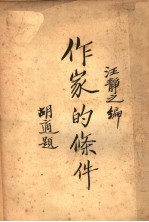 汪靜之編
作家的條件
胡適題